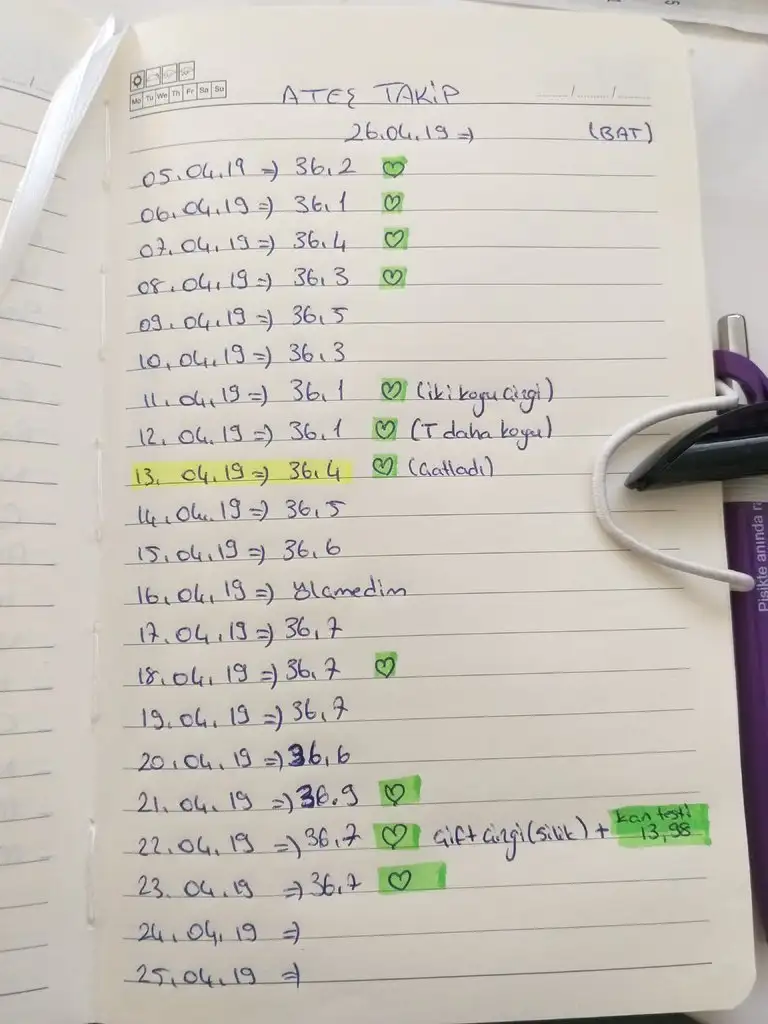 Mo Tu We Th Fr Sa Su
ATEŞ TAKİP
26.04.19 ⇒ (BAT)
05.04.19 ⇒ 36,2 ♡
06.04.19 ⇒ 36,1 ♡
07.04.19 ⇒ 36,4 ♡
08.04.19 ⇒ 36,3 ♡
09.04.19 ⇒ 36,5
10.04.19 ⇒ 36,3
11.04.19 ⇒ 36,1 ♡ (iki koyu çizgi)
12.04.19 ⇒ 36,1 ♡ (T daha koyu)
13.04.19 ⇒ 36,4 ♡ (Çatladı)
14.04.19 ⇒ 36,5
15.04.19 ⇒ 36,6
16.04.19 ⇒ ölçmedim
17.04.19 ⇒ 36,7
18.04.19 ⇒ 36,7 ♡
19.04.19 ⇒ 36,7
20.04.19 ⇒ 36,6
21.04.19 ⇒ 36.9 ♡
22.04.19 ⇒ 36,7 ♡ Çift çizgi (silik) + kan testi 13,98
23.04.19 ⇒ 36,7 ♡
24.04.19 ⇒
25.04.19 ⇒
Pisikte anında